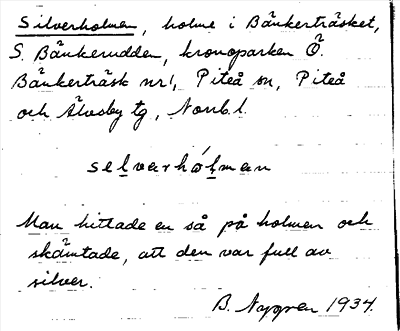 Silverholmen, holme i Bänkerträsket,
S. Bänkerudden, kronoparken Ö.
Bänkerträsk nr 1, Piteå sn, Piteå
och Älvsby tg, Norrb. l.
selvarhólman
Man hittade en så på holmen och
skämtade, att den var full av
silver.
B. Nygren 1934.